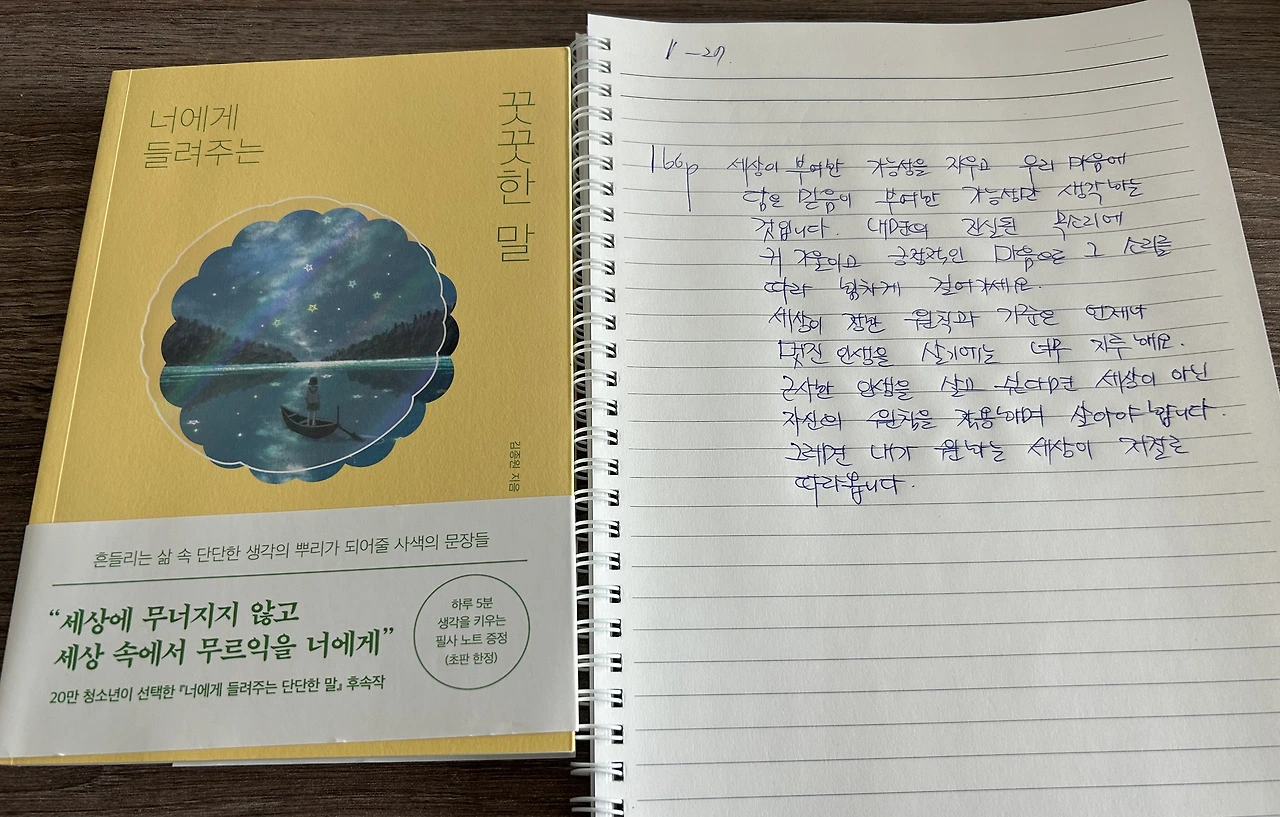 너에게
들려주는
꿋꿋한 말
김종원 지음
흔들리는 삶 속 단단한 생각의 뿌리가 되어줄 사색의 문장들
“세상에 무너지지 않고
세상 속에서 무르익을 너에게”
20만 청소년이 선택한 『너에게 들려주는 단단한 말』 후속작
하루 5분
생각을 키우는
필사 노트 증정
(초판 한정)
166p 세상이 부여한 가능성을 지우고 우리 마음에
담은 믿음이 부여한 가능성만 생각하는
것입니다. 내면의 진실된 목소리에
귀 기울이고 긍정적인 마음으로 그 소리를
따라 힘차게 걸어가세요.
세상이 정한 원칙과 기준은 언제나
멋진 인생을 살기에는 너무 지루해요.
근사한 인생을 살고 싶다면 세상이 아닌
자신의 원칙을 적용하며 살아야 합니다.
그러면 내가 원하는 세상이 저절로
따라옵니다.